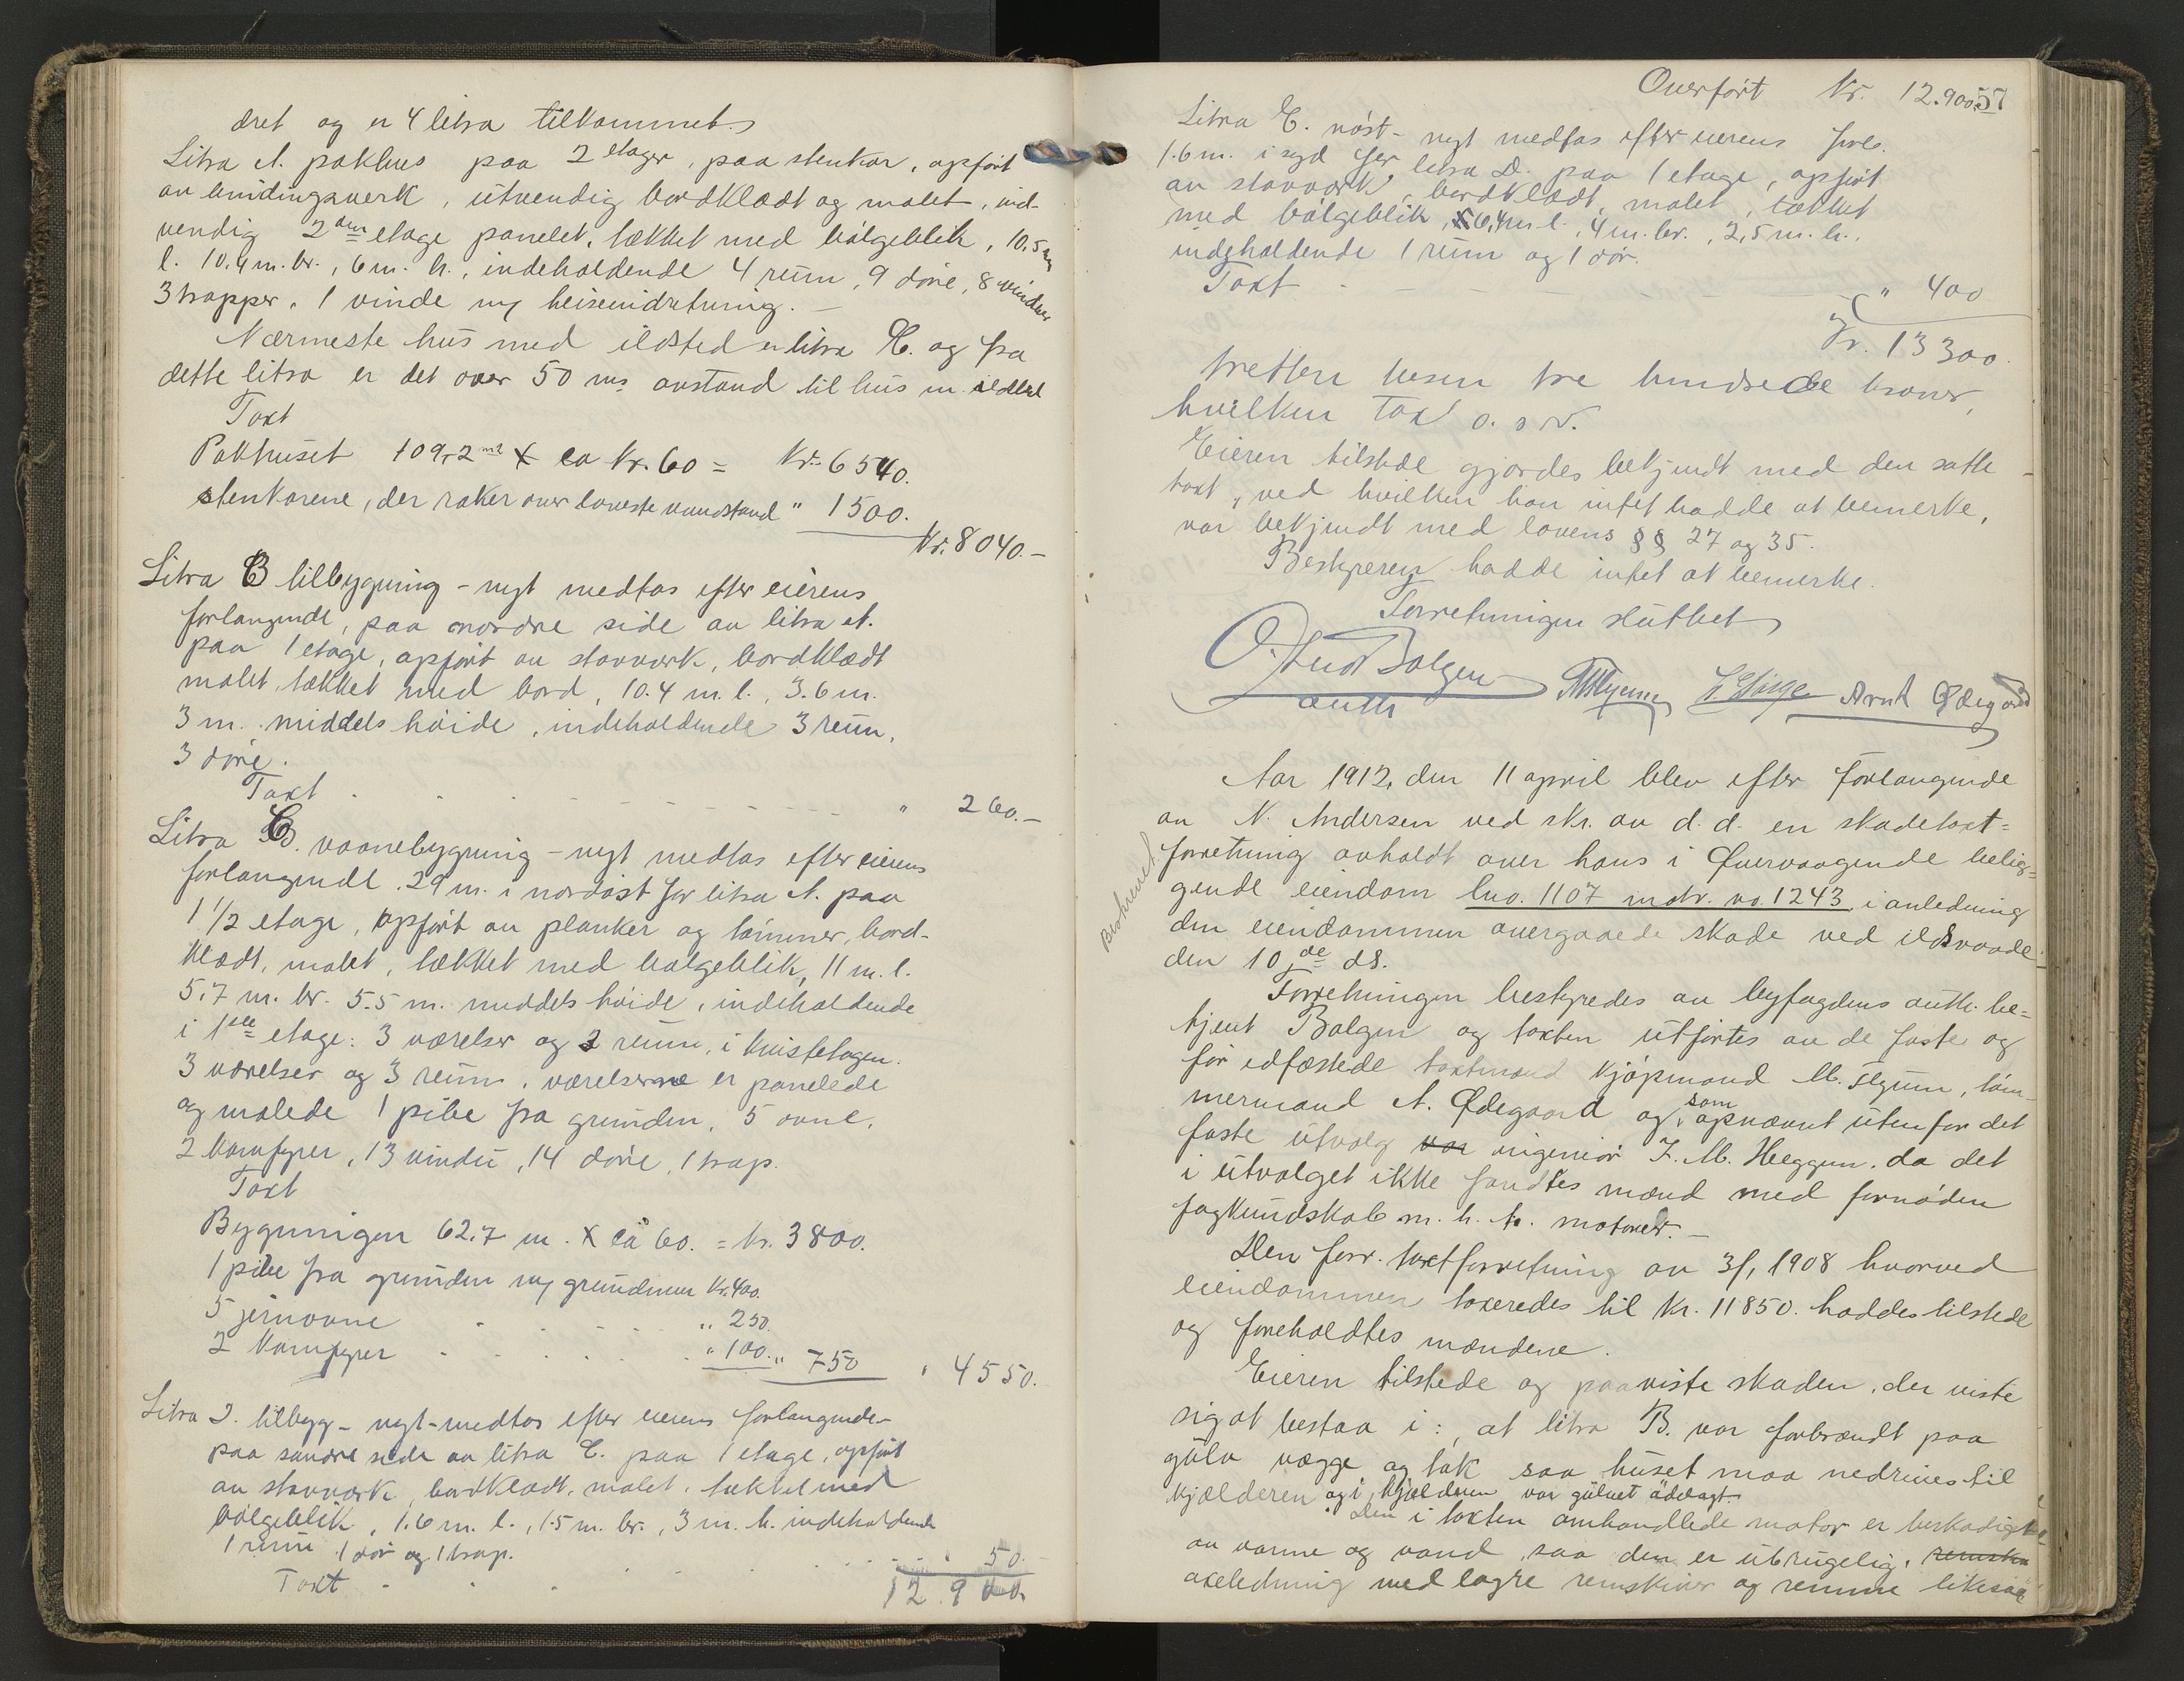 dret og er 4 litra tilkommet.
Litra A. pakhus paa 2 etager, paa stenkar, opført
av bindingsverk, utvendig bordklædt og malet, ind-
vendig 2den etage panelet, tækket med bølgeblik, 10,5 m
l. 10.4 m. br., 6 m. h., indeholdende 4 rum, 9 døre, 8 vinduer
3 trapper, 1 vinde m/ heiseindretning. —
Nærmeste hus med ildsted er litra C. og fra
dette litra er det over 50 m. avstand til hus m. ildsted
Taxt
Pakhuset 109,2 m2 x ca Kr. 60 = Kr. 6540.
stenkarene, der raker over laveste vandstand " 1500.
Kr. 8040.–
Litra B tilbygning – nyt medtas efter eierens
forlangende, paa nordre side av litra A.
paa 1 etage, opført av stavverk, bordklædt
malet, tækket med bord, 10.4 m. l., 3.6 m.
3 m. middels høide, indeholdende 3 rum,
3 døre.
Taxt " 260.–
Litra C. vaanebygning – nyt medtas efter eierens
forlangende. 29 m. i nordøst for litra A. paa
1 1/2 etage, opført av planker og tømmer, bord-
klædt, malet, tækket med bølgeblik, 11 m. l.
5.7 m. br. 5.5 m. middels høide, indeholdende
i 1ste etage: 3 værelser og 2 rum, i kvistetagen
3 værelser og 3 rum, værelserne er panelede
og malede 1 pibe fra grunden, 5 ovne,
2 komfyrer, 13 vindu, 14 døre, 1 trap.
Taxt
Bygningen 62.7 m. x ca 60. = kr. 3800.
1 pibe fra grunden m/ grundmur Kr. 400.
5 jernovne " 250.
2 komfyrer " 100. " 750 " 4550.
Litra D. tilbyg – nyt – medtas efter eierens forlangende –
paa søndre side av litra C. paa 1 etage, opført
av stavverk, bordklædt, malet, tækket med
bølgeblik, 1.6 m. l., 1.5 m. br., 3 m. h. indeholdende
1 rum 1 dør og 1 trap.
Taxt " 50.
12.900
Overført Kr. 12.900 57
Litra E. nøst – nyt medtas efter eierens forl.
1.6 m. i syd for litra D. paa 1 etage, opført
av stavverk, bordklædt, malet, tækket
med bølgeblik, 6,4 m. l., 4 m. br., 2,5 m. h.,
indeholdende 1 rum og 1 dør.
Taxt " 400
Kr. 13300.
tretten tusen tre hundrede kroner,
hvilken tax o. s. v.
Eieren tilstede gjordes bekjendt med den satte
taxt, ved hvilken han intet hadde at bemerke,
var bekjendt med lovens §§ 27 og 35.
Bestyreren hadde intet at bemerke.
Forretningen sluttet
Bolgen
auth
Arnt Ødegaard
Aar 1912, den 11 april blev efter forlangende
av N. Andersen ved skr. av d. d. en skadetaxt=
forretning avholdt over hans i Øvervaagende belig=
gende eiendom lno. 1107 matr. no. 1243 i anledning
den eiendommen overgaaede skade ved ildsvaade
den 10de ds.
Beskrevet.
Forretningen bestyredes av byfogdens auth. be=
tjent Bolgen og taxten utførtes av de faste og
før edfæstede taxtmænd kjøpmand M. Flyum, tøm-
mermand A. Ødegaard og, som opnævnt utenfor det
faste utvalg var ingeniør J. M. Heggen, da det
i utvalget ikke fandtes mænd med fornøden
fagkundskab m. h. t. motorer. –
Den forr. taxtforretning av 3/1 1908 hvorved
eiendommen taxeredes til Kr. 11850. haddes tilstede
og foreholdtes mændene.
Eieren tilstede og paaviste skaden, der viste
sig at bestaa i:, at litra B. var forbrændt paa
gulv vægge og tak saa huset maa nedrives til
kjælderen og i kjælderen var gulvet ødelagt.
Den i taxten omhandlede motor er beskadiget
av varme og vand, saa den er ubrugelig, remski
axeledning med lagre remskiver og remme likesaa